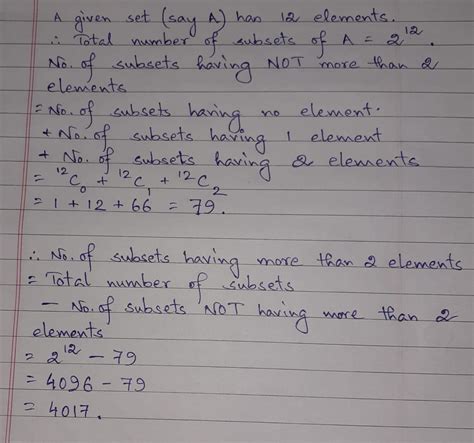 A given set (say A) has 12 elements.
∴ Total number of subsets of A = 2¹².
No. of subsets having NOT more than 2
elements
= No. of subsets having no element.
+ No. of subsets having 1 element
+ No. of subsets having 2 elements
= ¹²C₀ + ¹²C₁ + ¹²C₂
= 1 + 12 + 66 = 79.
∴ No. of subsets having more than 2 elements
= Total number of subsets
- No. of subsets NOT having more than 2
elements
= 2¹² - 79
= 4096 - 79
= 4017.